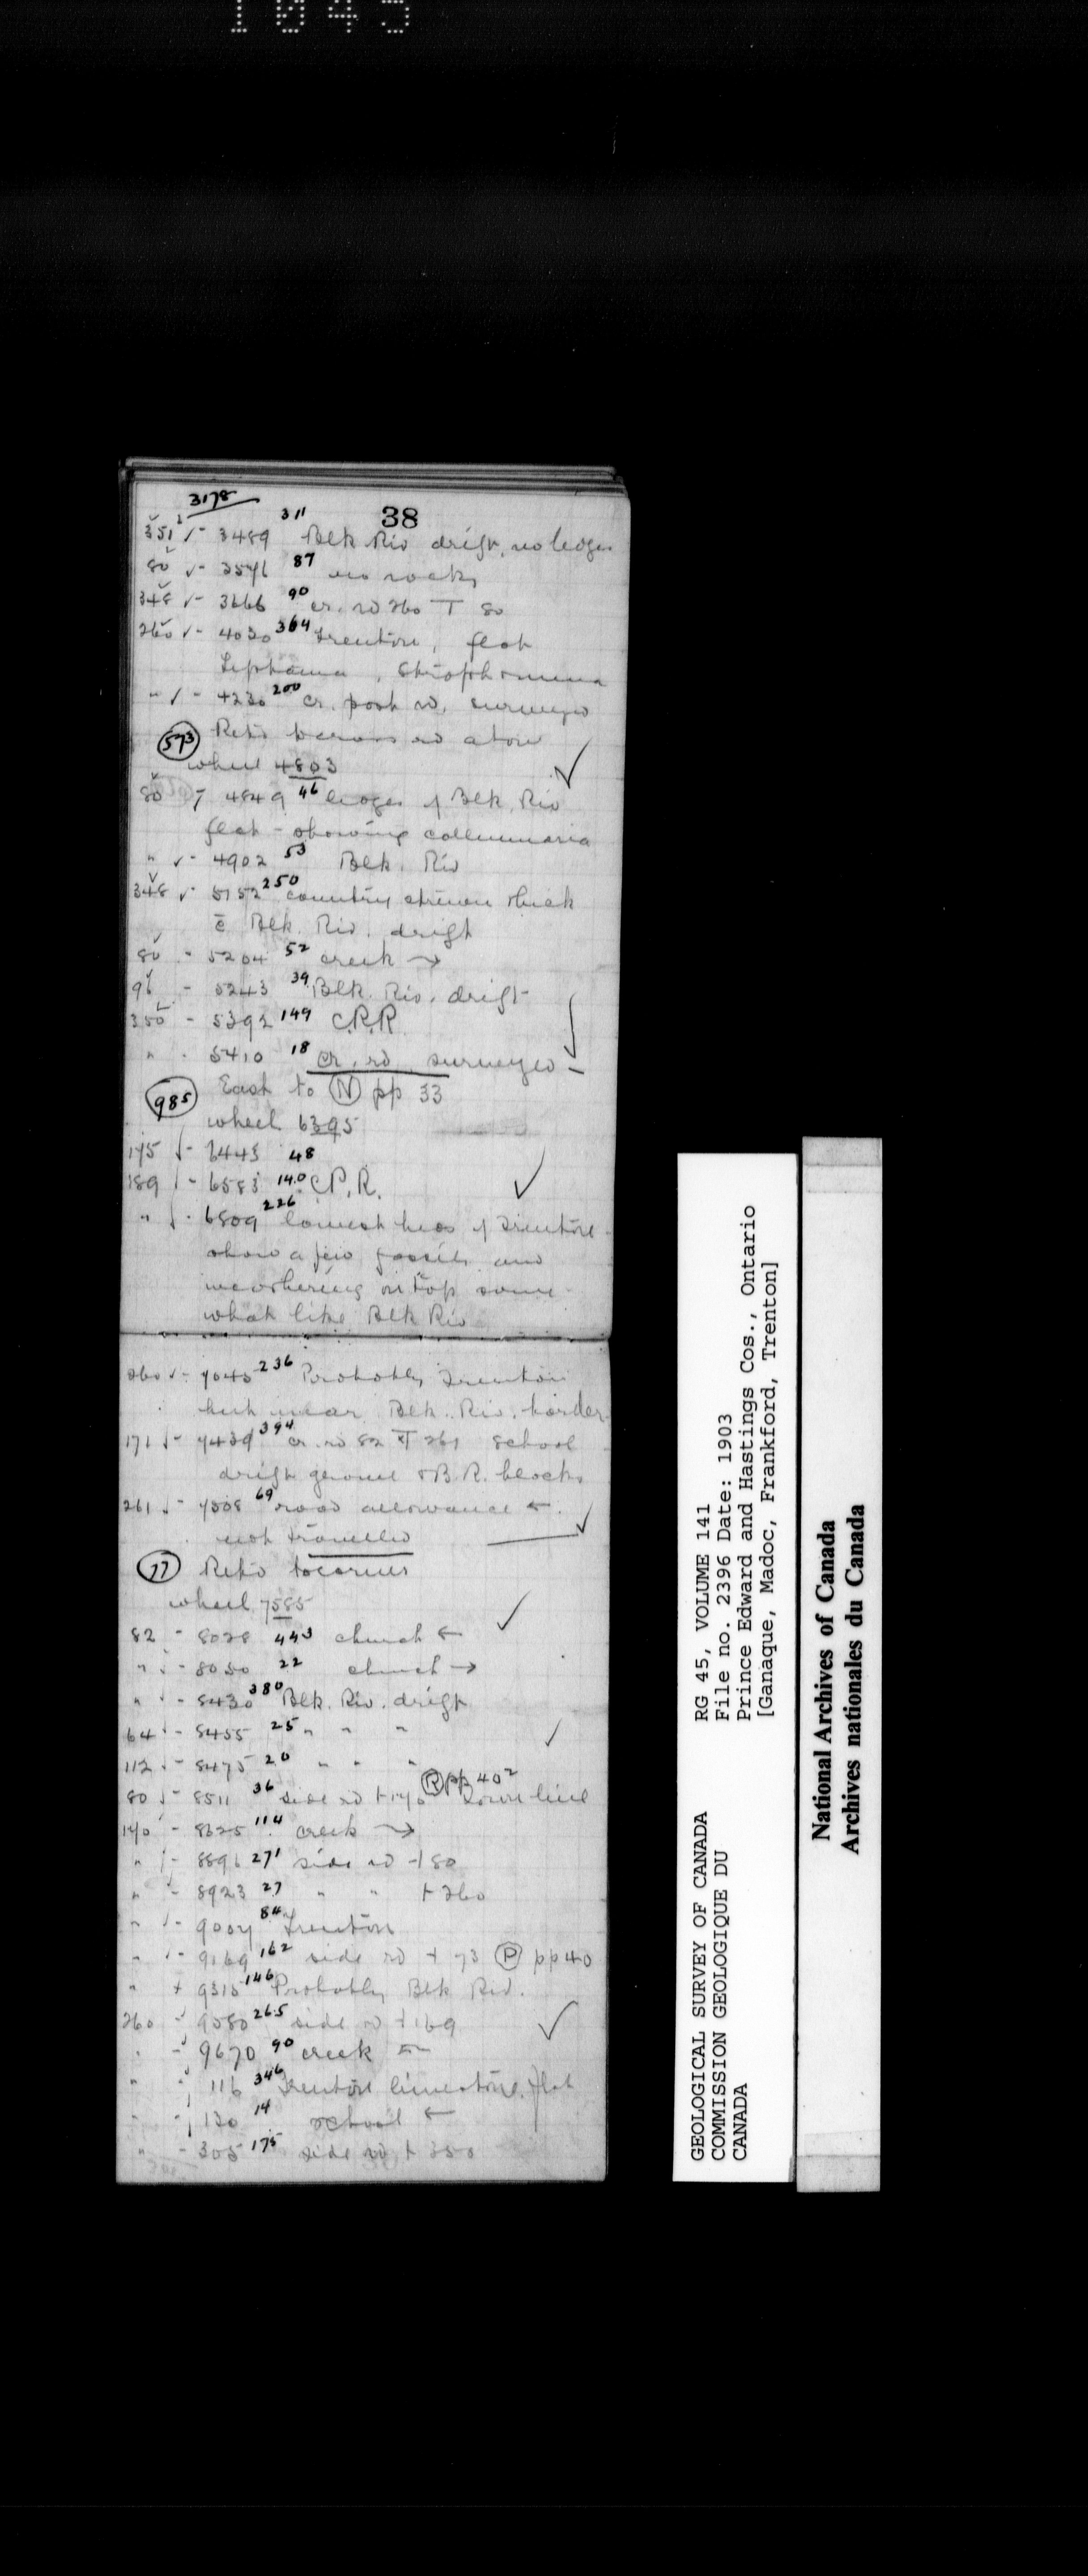 1045
3178
38
351 - 3489 311 Blk Riv drift, no ledges
80 - 3576 87 no rocks
348 - 3666 90 cr. rd 260 T 80
260 - 4030 364 Trenton, flat
Leptaena, Strophomena
" - 4230 200 cr. post rd, surveyed
573 Retd across rd above
wheel 4803
80 - 4849 46 ledges of Blk. Riv
flat - showing columnaria
" - 4902 53 Blk. Riv
348 - 5152 250 country strewn thick
c̄ Blk. Riv. drift
80 - 5204 52 creek →
96 - 5243 39 Blk. Riv. drift
350 - 5392 149 C.P.R.
" - 5410 18 cr. rd surveyed -
985 East to (N) pp 33
wheel 6395
175 - 6443 48
189 - 6583 140 C.P.R.
" - 6809 226 lowest beds of Trenton
show a few fossils and
weathering on top some-
what like Blk Riv
260 - 7045 236 Probably Trenton
but near Blk. Riv. border
171 - 7439 394 cr. rd 82 T 261 school
drift gravel & B.R. blocks
261 - 7508 69 road allowance ←
not travelled
77 Retd to corner
wheel 7585
82 - 8028 443 church ←
" - 8050 22 church →
" - 8430 380 Blk. Riv. drift
64 - 8455 25 " " "
112 - 8475 20 " " "
(R) pp 402
80 - 8511 36 side rd ⊢ 170 town line
170 - 8625 114 creek →
" - 8896 271 side rd ⊣ 80
" - 8923 27 " " ⊢ 260
" - 9007 84 Trenton
" - 9169 162 side rd + 73 (P) pp 40
" - 9315 146 Probably Blk Riv.
260 - 9580 265 side rd + 169
" - 9670 90 creek ←
" - 116 346 Trenton limestone, flat
" - 130 14 school ←
" - 305 175 side rd + 350
GEOLOGICAL SURVEY OF CANADA
COMMISSION GEOLOGIQUE DU
CANADA
RG 45, VOLUME 141
File no. 2396 Date: 1903
Prince Edward and Hastings Cos., Ontario
[Ganaque, Madoc, Frankford, Trenton]
National Archives of Canada
Archives nationales du Canada